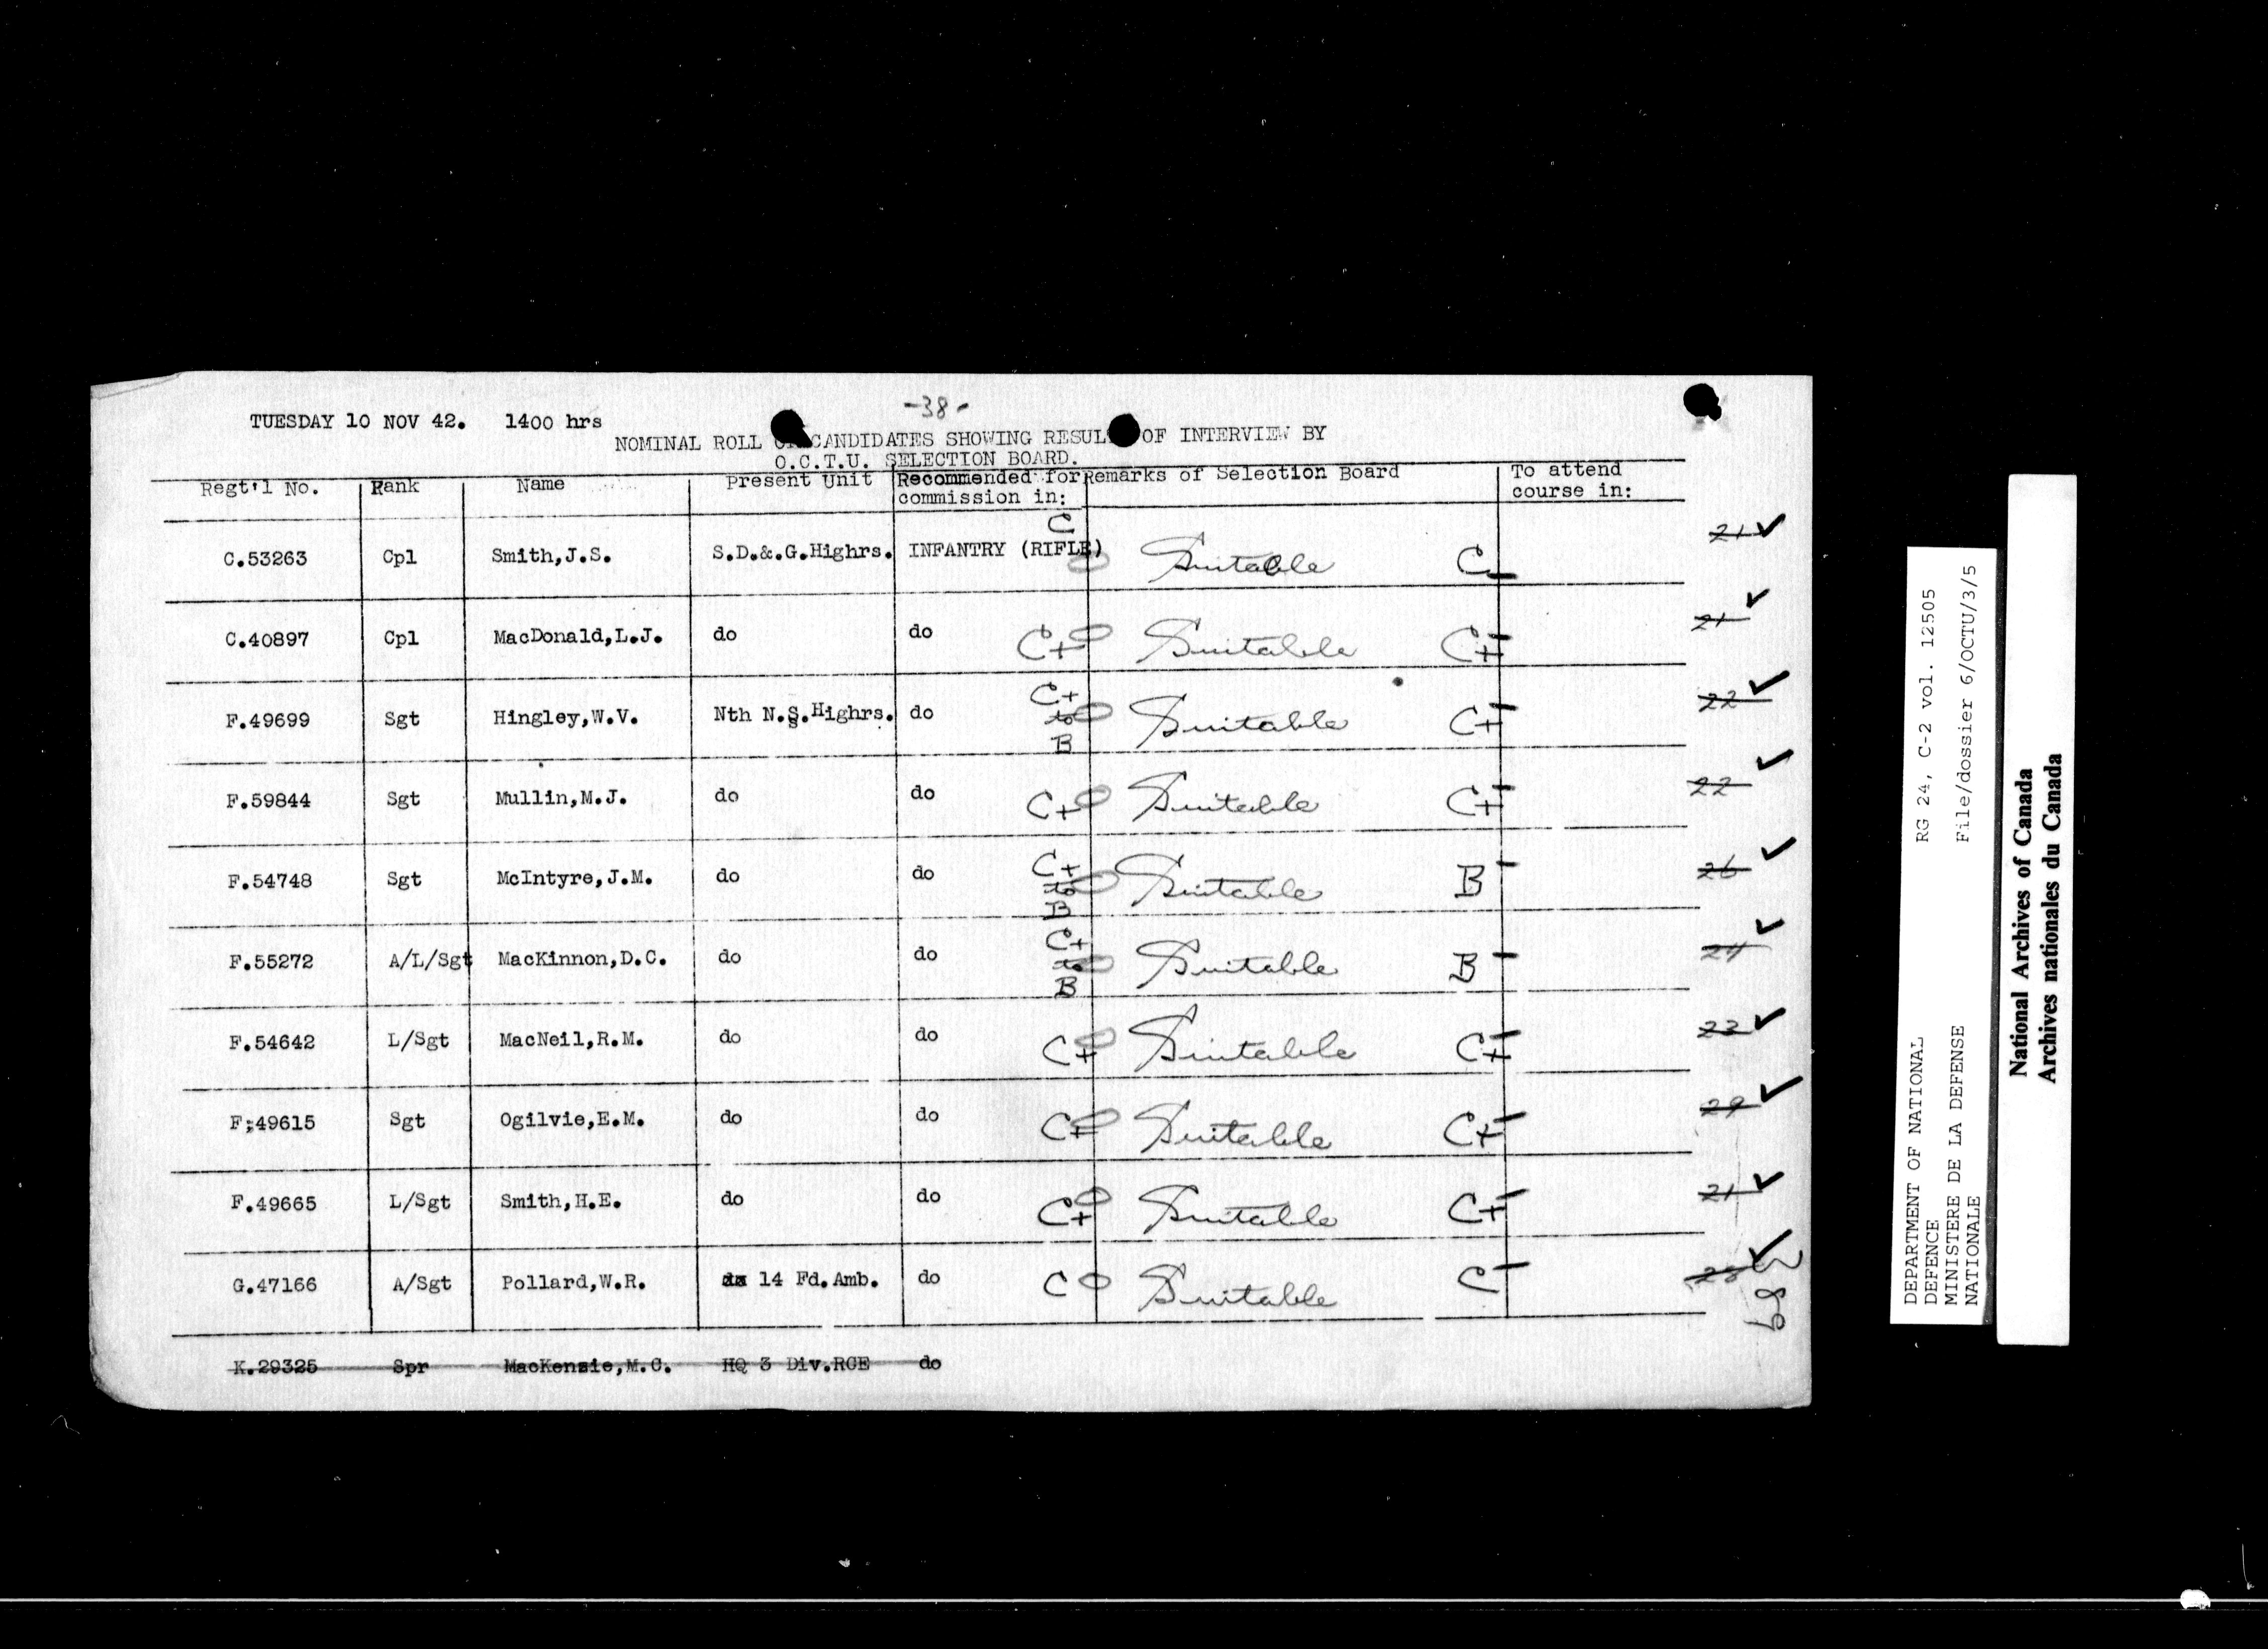 -38-
TUESDAY 10 NOV 42. 1400 hrs
NOMINAL ROLL CANDIDATES SHOWING RESUL OF INTERVIEW BY
O.C.T.U. SELECTION BOARD.
Regt'l No. Rank Name Present Unit Recommended for commission in: Remarks of Selection Board To attend course in:
C.53263 Cpl Smith,J.S. S.D.&.G.Highrs. INFANTRY (RIFLE) C Suitable C 21 ✓
C.40897 Cpl MacDonald,L.J. do do C+ Suitable C+ 21 ✓
F.49699 Sgt Hingley,W.V. Nth N.S.Highrs. do C+ to B Suitable C+ 22 ✓
F.59844 Sgt Mullin,M.J. do do C+ Suitable C+ 22 ✓
F.54748 Sgt McIntyre,J.M. do do C+ to B Suitable B 26 ✓
F.55272 A/L/Sgt MacKinnon,D.C. do do C+ to B Suitable B ✓
F.54642 L/Sgt MacNeil,R.M. do do C+ Suitable C+ 23 ✓
F;49615 Sgt Ogilvie,E.M. do do C+ Suitable C+ 29 ✓
F.49665 L/Sgt Smith,H.E. do do C+ Suitable C+ 21 ✓
G.47166 A/Sgt Pollard,W.R. 14 Fd.Amb. do C Suitable C ✓
K.29325 Spr MacKenzie,M.C. HQ 3 Div.RCE do
DEPARTMENT OF NATIONAL RG 24, C-2 vol. 12505
DEFENCE
MINISTERE DE LA DEFENSE File/dossier 6/OCTU/3/5
NATIONALE
National Archives of Canada
Archives nationales du Canada